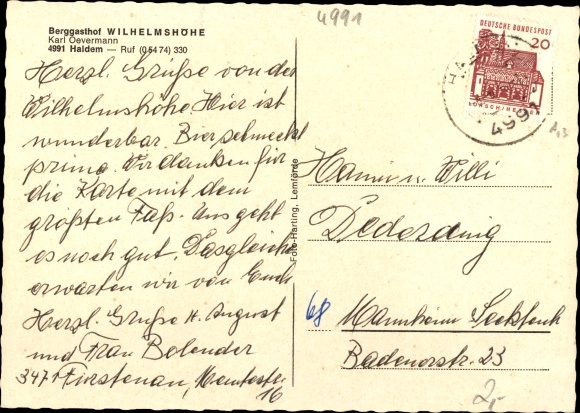 4991
Berggasthof WILHELMSHÖHE
Karl Oevermann
4991 Haldem — Ruf (05474) 330
Herzl. Grüße von der
Wilhelmshöhe. Hier ist
wunderbar. Bier schmeckt
prima. Wir danken für
die Karte mit dem
größten Faß. Uns geht
es noch gut. Dasgleiche
erwarten wir von Euch
Herzl. Grüße H. August
und Frau Bolender
3471 Fürstenau,
16
Foto-Harting, Lemförde
DEUTSCHE BUNDESPOST
20
LORSCH/HESSEN
4991
Hanni u. Willi
Dederding
68 Mannheim Seckenh
Badenerstr. 23
2,-